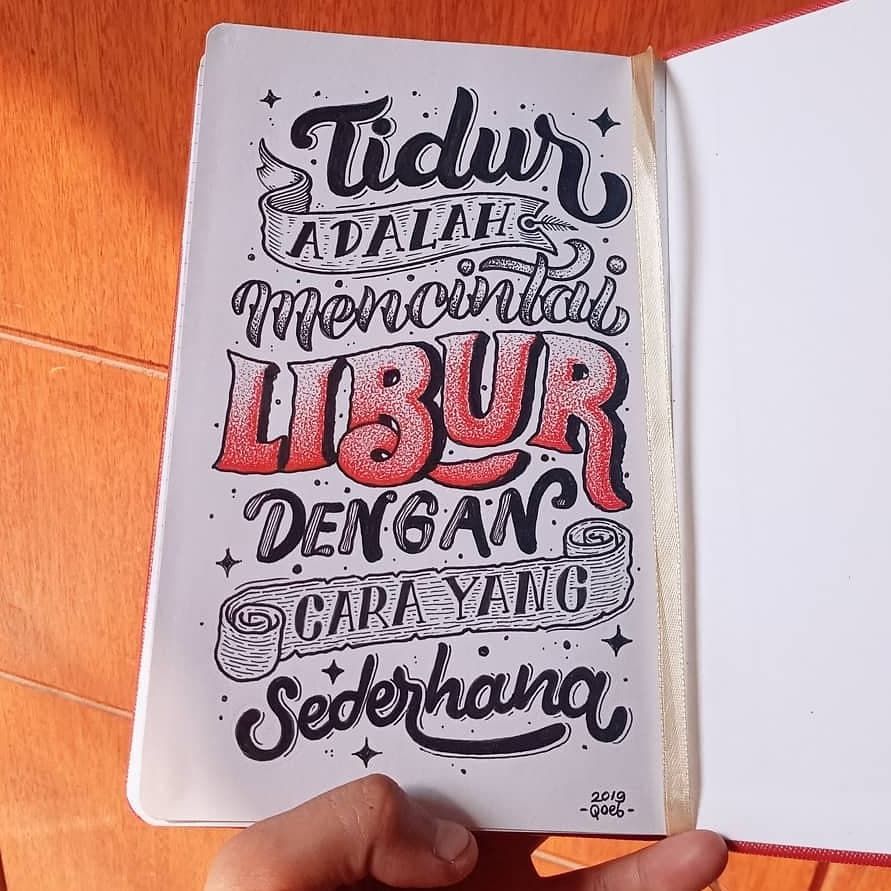 Tidur
ADALAH
mencintai
LIBUR
DENGAN
CARA YANG
Sederhana
2019
-Qoeb-